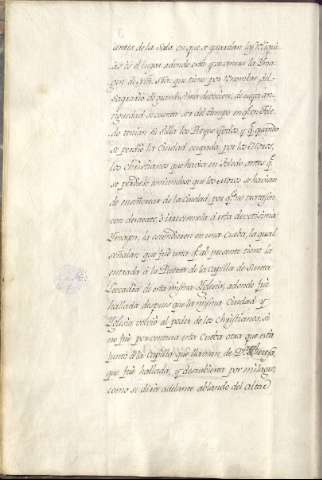 dentro de la Sala en que se guardan las Reliqui-
as es el lugar adonde està que consta la Ima-
gen de Ntra. Sra. que tiene por nombre del
sagrario de grande devocion, de cuya an-
tiguedad se cuenta ser del tiempo en que Tole-
do tenian en ella los Reyes Godos, y q. quando
se perdio la Ciudad ocupada por los Moros,
los Christianos que havia en Toledo antes q.
se perdiese temiendose que los Moros se havian
de enseñorear de la Ciudad, por q. no tratasen
con desacato, ò irreverencia à esta devotissima
Imagen, la escondieron en una Cueba, la qual
señalan que fue una q. al presente tiene la
entrada à la Puerta de la Capilla de Santa
Leocadia de esta misma Iglesia, adonde fue
hallada despues que la misma Ciudad, y
Iglesia volviò al poder de los Christianos, si
no fue por ventura esta Cueba otra que està
junto à la Capilla que llaman de Dª. Theresa,
que fue hallada, y descubierta por milagro,
como se dirà adelante ablando del Altar